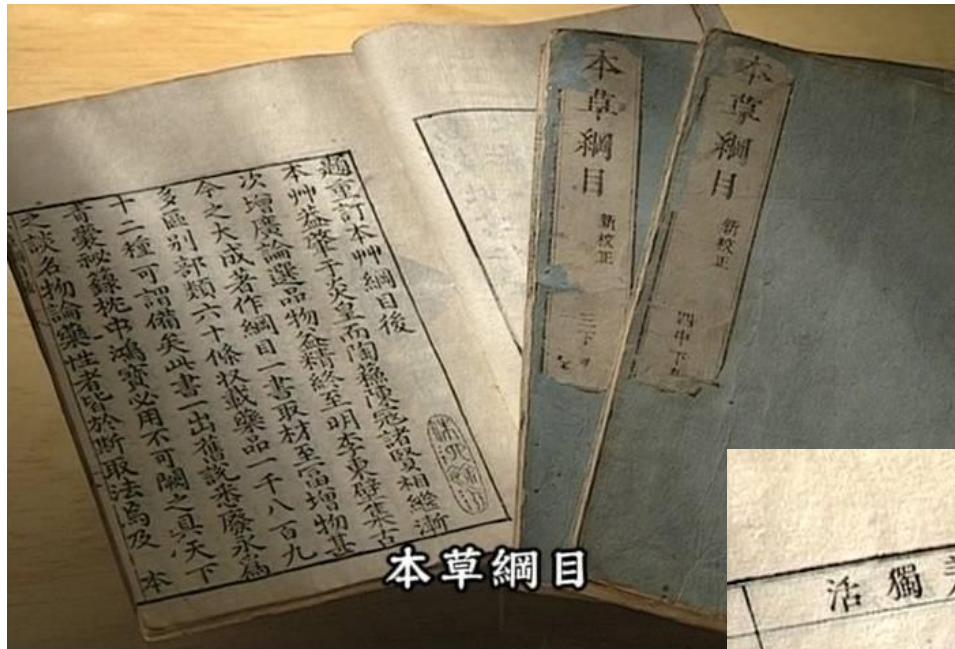 題重訂本艸綱目後
本艸益肇于炎皇而陶蘇陳寇諸賢相繼漸
次增廣論選品物益精終至明李東壁集古
今之大成著作綱目一書取材至富增物甚
多區別部類六十條狀載藥品一千八百九
十二種可謂備矣此書一出舊說悉廢永為
奇囊秘籙枕中鴻寶必用不可闕之具天下
之談名物論藥性者皆於斯取法焉及 本
本草綱目
新校正
三下
本草綱目
新校正
四中下
本草綱目
獨活